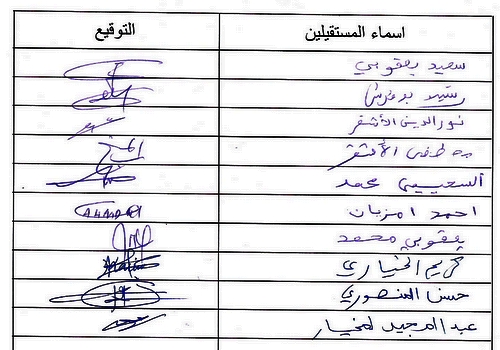 اسماء المستقيلين التوقيع
سعيد يعقوبي
رشيد بوهدوش
نور الدين الأشقر
مصطفى الأشقر
السعيدي محمد
احمد امزيان AHMED
يعقوبي محمد
كريم الخياري
حسن المنصوري
عبد المجيد لمخيار